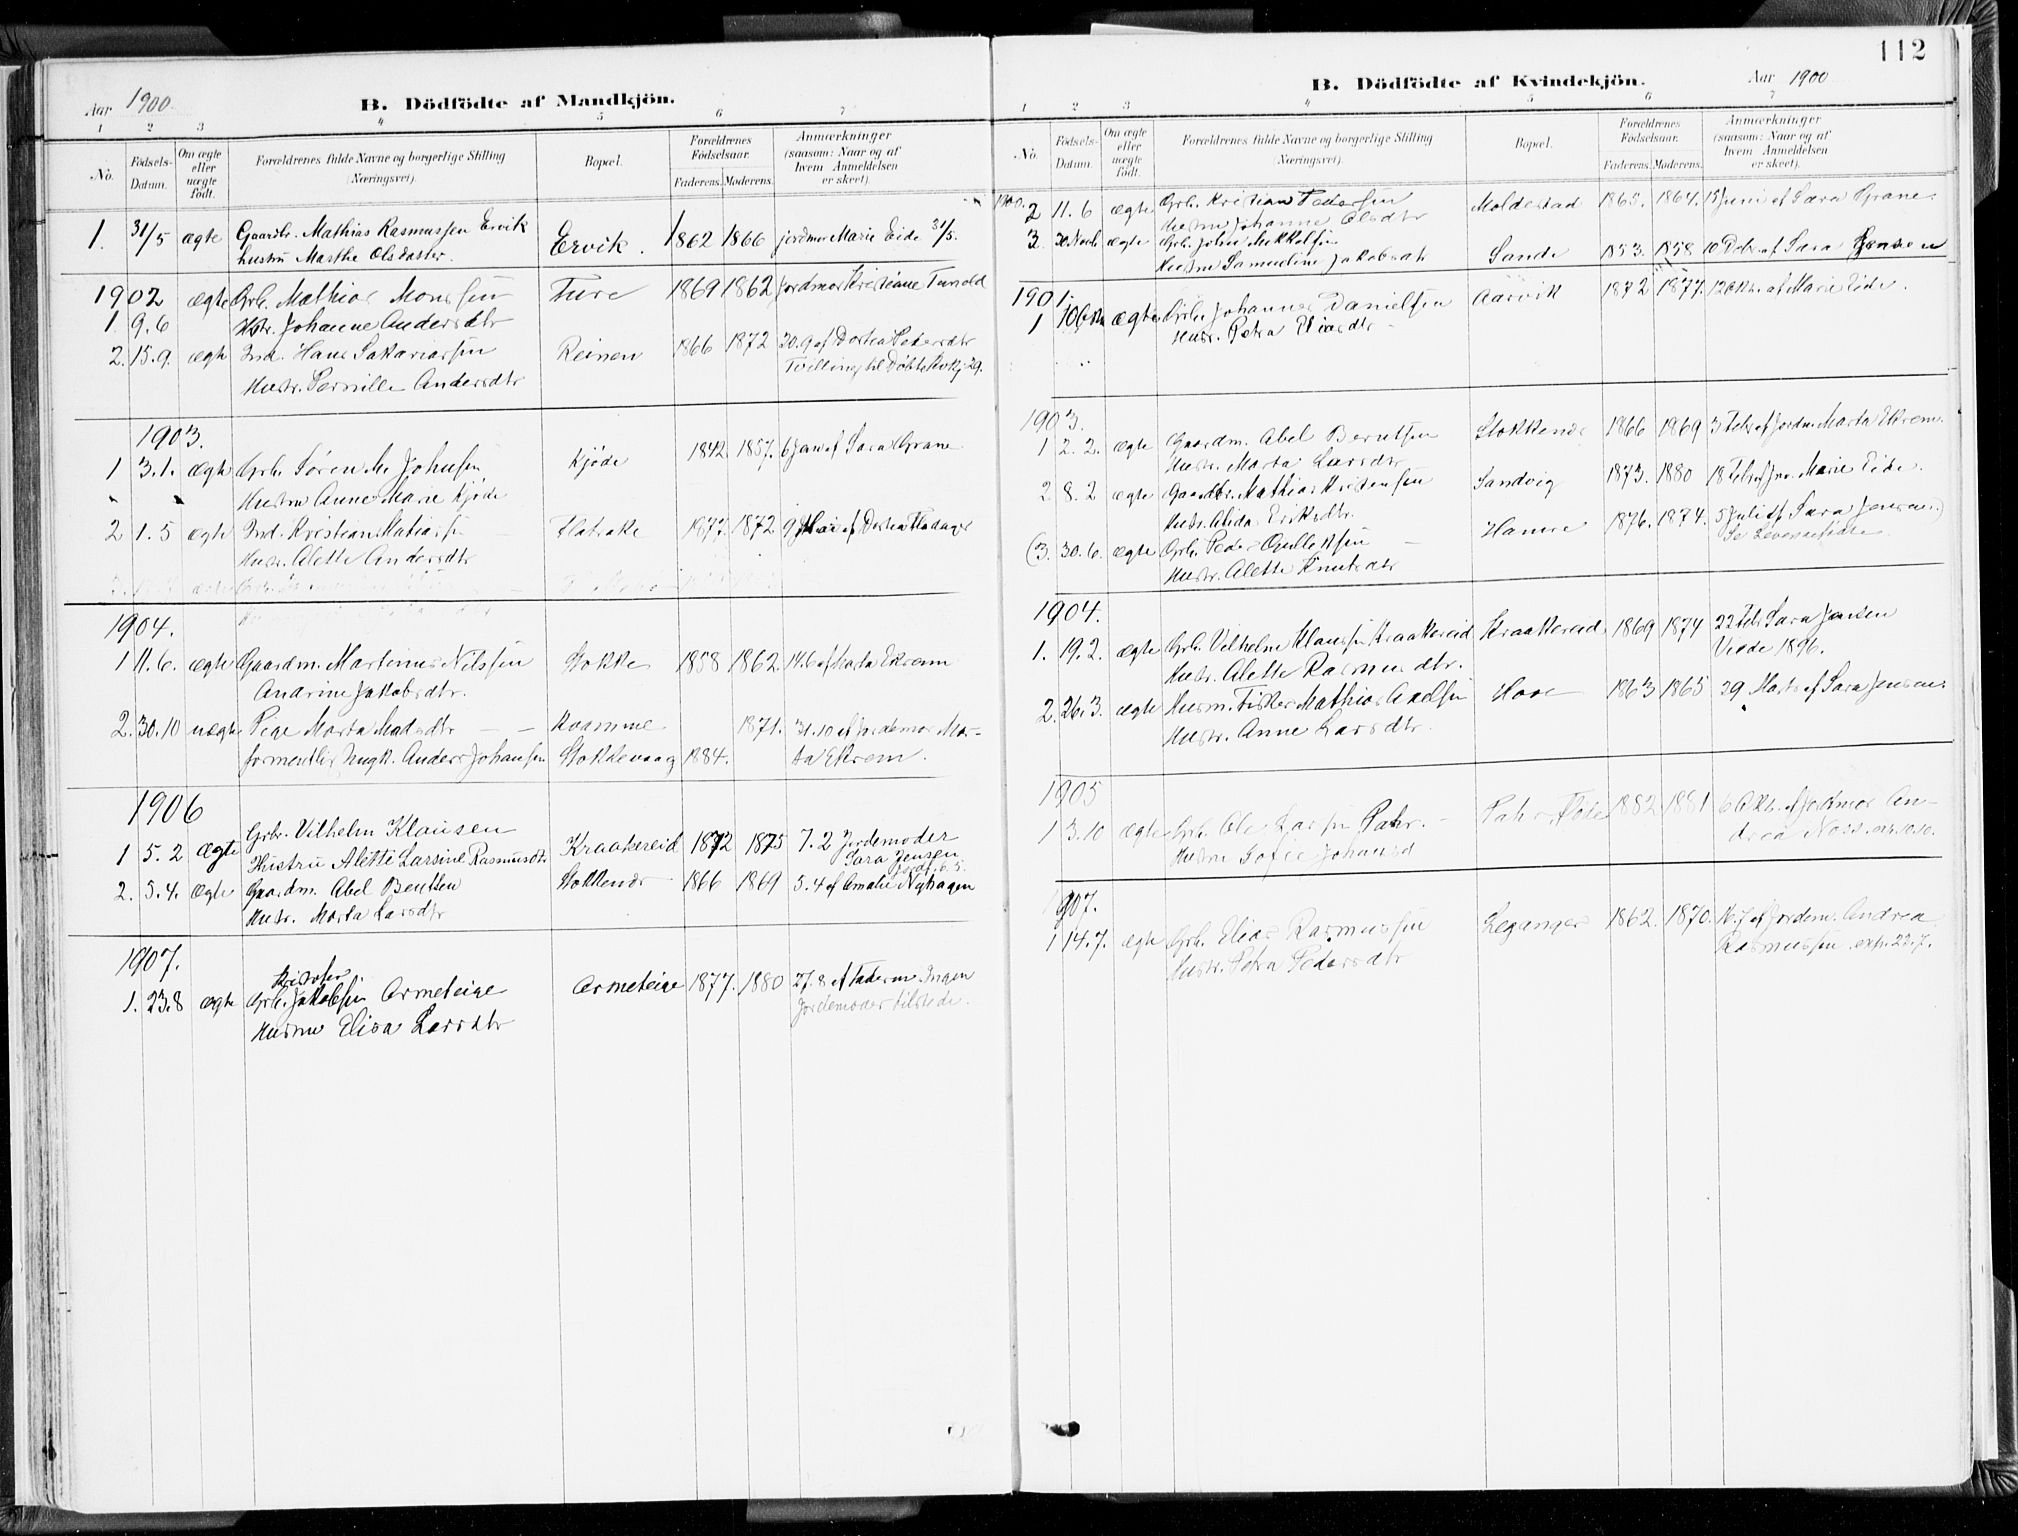 Aar 1900.
B. Dödfödte af Mandkjön.
1 2 3 4 5 6 7
No.
Födsels-Datum.
Om ægte eller uægte födt.
Forældrenes fulde Navne og borgerlige Stilling (Næringsvei).
Bopæl.
Forældrenes Födselsaar.
Faderens. Moderens.
Anmærkninger (saasom: Naar og af hvem Anmeldelsen er skeet).
1. 31/5 ægte Gaardbr. Mathias Rasmussen Ervik Ervik. 1862 1866 jordmor Marie Eide 31/5.
hustru Marthe Olsdatter.
1902 ægte Grb. Mathias Monssen Ture 1869 1862 Jordmor Kristiane Tunold
1. 9.6 Hstr. Johanne Andersdtr
2. 15.9. ægte Ind. Hans Sakariassen Reinen 1866 1872 30.9 af Dortea Pedersdtr
Hustr. Pernille Andersdtr Tvilling til Döbte Kvkj. 29.
1903.
1 3.1. ægte Grb. Sören M. Johnsen Kjöde 1842. 1857. 6 Jan af Sara Grane
Hustru Anne Marie Kjöde
2 1.5 ægte Ind. Kristian Matiassen Flatrake 1877. 1872. 9 Mai af Dortea Fladager
Hustr. Alette Andersdtr
1904.
1 11.6. ægte Gaardm. Martinus Nilssen Stokke 1858 1862. 14.6 af Marta Ekrem
Andrine Jakobsdtr.
2. 30.10 uægte Pige Marta Madsdtr Raamme 1871. 31.10 af jordemor Mar-
formentlig Ungk. Anders Johansen Stokkevaag 1884. ta Ekrem.
1906
Grbr. Vilhelm Klausen
1 5.2 Ægte Hustru Alette Larsine Rasmusdtr Kraakereid 1872 1875 7.2 Jordemoder
Sara Jensen
2. 5.4. Ægte Gaardm. Abel Bentsen Stokkenes 1866 1869 5.4 af Amalie Nyhagen
Hustr. Marta Larsdtr
1907.
Kristofer
1. 23.8 ægte Grb. Jakobsen Armeteige Armeteige 1877. 1880 27.8 af Faderen. Ingen
Hustru Elisa Larsdtr Jordemoder tilstede.
112
B. Dödfödte af Kvindekjön.
Aar 1900
1 2 3 4 5 6 7
No.
Födsels-Datum.
Om ægte eller uægte födt.
Forældrenes fulde Navne og borgerlige Stilling (Næringsvei).
Bopæl.
Forældrenes Födselsaar.
Faderens. Moderens.
Anmærkninger (saasom: Naar og af hvem Anmeldelsen er skeet).
1900. 2 11.6 ægte Grb. Kristian Pedersen Moldestad 1865. 1864. 15 Juni af Sara Grane.
Hustru Johanne Olsdtr
3. 30 Novb ægte Grb. John Mikkelsen
Hustru Samueline Jakobsdtr Sande 1853. 1858 10 Debr af Sara Jensen
1901.
1 10 Okt ægte Grb. Johannes Danielsen Aarvik 1872 1877. 12 Oktr. af Marie Eide.
Hustr. Petra Eliasdtr
1903.
1 2.2. ægte Gaardm. Abel Berntsen Stokkenes 1866 1869 3 Febr af Jordm. Marta Ekrem.
Hustr. Marta Larsdtr
2 8.2 ægte Gaardbr. Mathias Kristensen Sandvig 1873. 1880 18 Febr af Jm. Marie Eide.
Hustr. Alida Eriksdtr.
(3. 30.6. ægte Grb. Peder Gullaksen Hamre 1876. 1874. 5 Juli af Sara Jensen.)
Hustr. Alette Knutsdtr Se Levendefödte
1904.
1. 19.2. ægte Grb. Vilhelm Klaussen Kraakereid Kraakereid 1869 1874 22 Febr Sara Jensen
Hustr. Alette Rasmusdtr. Viede 1896.
2. 26.3. ægte Husm. Fisker Mathias Axelsen Hove 1863 1865 29 Marts af Sara Jensen.
Hustr. Anne Larsdtr.
1905
1 3.10 ægte Grb. Ole Larsen Pahr. Pahr Töde 1882 1881 6 Oktr. af Jordmor An-
Hustru Sofie Johansd drea
1907.
1 14.7. ægte Grb. Elias Rasmussen Leganger 1862. 1870. 16.7 af Jordem. Andrea
Hustr. Petra Pedersdtr Rasmussen. extr. 22.7.